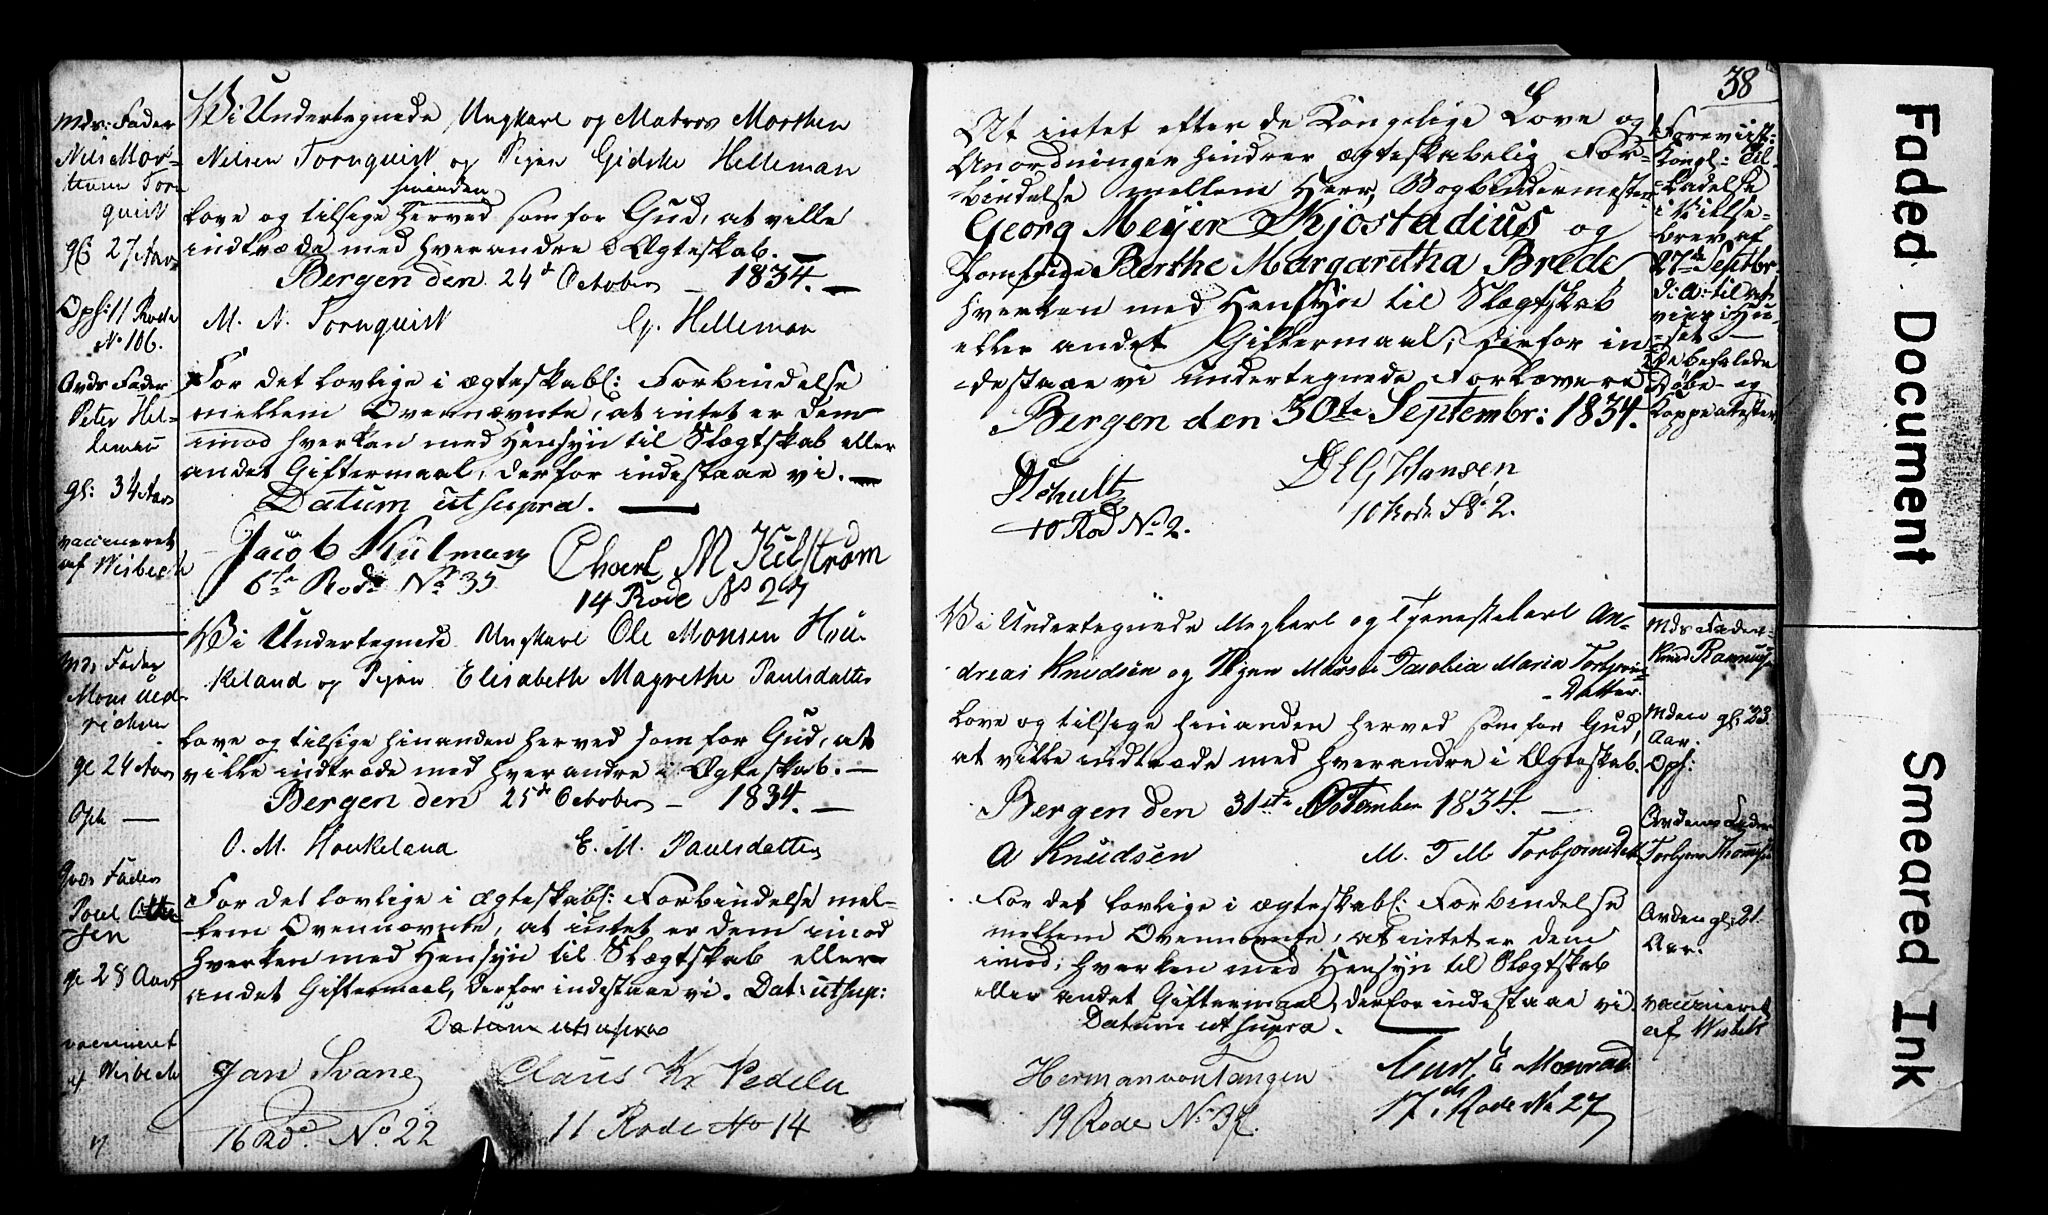 Mds: Fader
Nils Mor-
tenen Torn
quist
gl: 27 Aar
Oph: 11 Rode
No 106.
Brds Fader
Peter Hel-
leman
gl: 34 Aar
vaccineret
af Wisbech
Vi Undertegnede Ungkarl og Matros Morthen
Nelsen Tornquist og Pigen Gidske Helleman
hinanden
love og tilsige herved som for Gud, at ville
indtræde med hverandre i Ægteskab.
Bergen den 24de October – 1834. –
M. N. Tornquist G. Helleman
For det lovlige i ægteskabl: Forbindelse
mellem Ovennævnte, at intet er dem
imod hverken med Hensyn til Slægtskab eller
andet Giftermaal, derfor indestaae vi. –
Datum ut supra. –
Jacob Kulmann Charl M Kilstrøm
6te Rode No 35 14 Rode No 27
Mds Fader
Mons
gl 24 Aar
Oph –
Brds Fader
Poul Otte-
sen
gl 28 Aar
vaccineret
af Wisbech
Vi Undertegnede Ungkarl Ole Monsen Hou-
keland og Pigen Elisabeth Magrethe Paulsdatter
love og tilsige hinanden herved som for Gud, at
ville indtræde med hverandre i Ægteskab. –
Bergen den 25de October – 1834. –
O. M. Houkeland E. M. Paulsdatter
For det lovlige i ægteskabl: Forbindelse mel-
lem Ovennævnte, at intet er dem imod
hverken med Hensyn til Slægtskab eller
andet Giftermaal, derfor indestaae vi. Dat: ut sup:
Datum ut supra
Jan Svane Claus Kr Pedeln
16 Rd. No 22 11 Rode No 14
38
At intet efter de Kongelige Love og
Anordninger hindrer ægteskabelig For-
bindelse mellem Herr Bogbindermester
Georg Meyer Skjostadius og
Jomfrue Berthe Margaretha Brede
hverken med Hensyn til Slægtskab
eller andet Giftermaal, derfor in-
destaae vi undertegnede Forlovere
Bergen den 30te Septembr: 1834.
Schultz D E G Hansen
10 Rod No 2. 10 Rode No 2.
Foreviist
Kongl: Til-
ladelse
i Vielse-
brev af
27de Septbr
d: A: til at
vies i Hu-
set –
de befalede
Døbe- og
Koppeatester
Vi Undertegnede Ungkarl og Tjenestekarl An-
dreas Knudsen og Pigen Marse Tarobia Maria Torbjøns-
Datter.
love og tilsige hinanden herved som for Gud,
at ville indtræde med hverandre i Ægteskab.
Bergen den 31ste October 1834. –
A Knudsen M. T M Torbjornsdatt
For det lovlige i ægteskabl: Forbindelse
mellem Ovennævnte, at intet er dem
imod, hverken med Hensyn til Slægtskab
eller andet Giftermaal, derfor indestaae vi.
Datum ut supra. –
Herman von Tangen Curt E Monrad
19 Rode No 37. 17de Rode No 27
Mds Fader
Knud Rasmusen
Mden gl: 23
Aar:
Oph:
Brdens Fader
Torbjørn Thomsen
Brden gl: 21
Aar:
vaccineret
af Wisbek
Faded Document
Smeared Ink